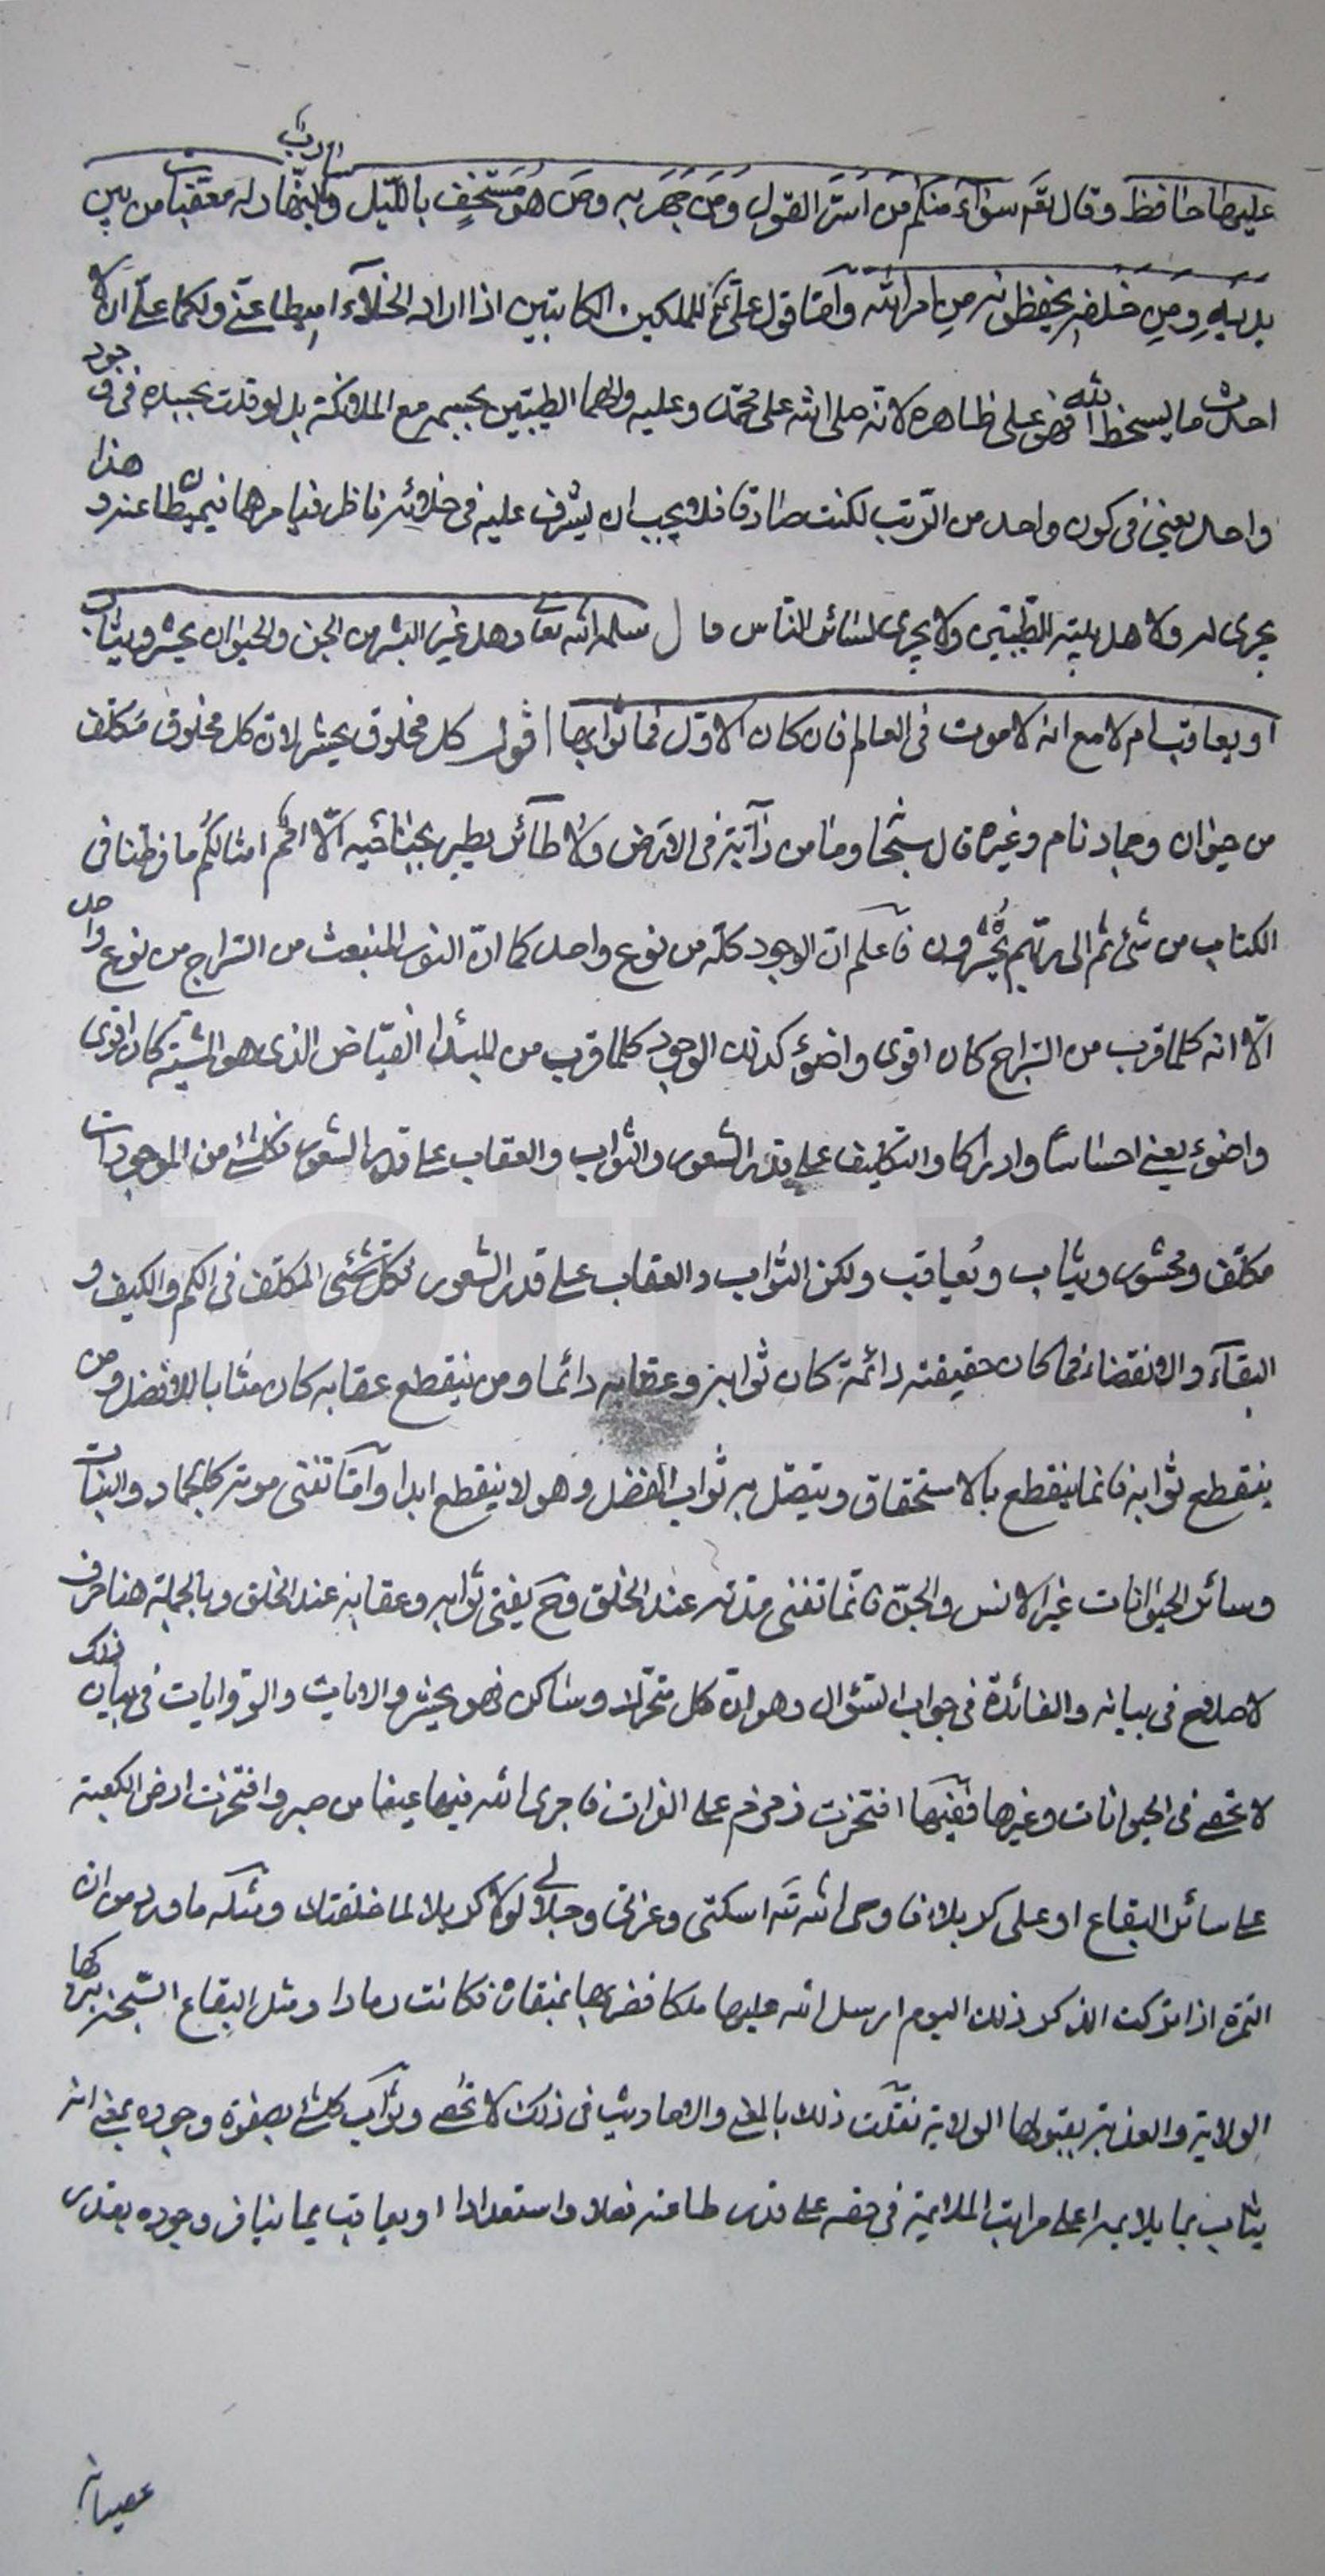 عليها حافظ وقال تعَ سوَآءٌ منكم مَن اسَرّ القول وَمَن جَهَر به ومَن هو مُستَخفٍ بالليل وسارب بالنّهار له معقّبات من بين
يديهِ ومِن خلفه يحفظونه مِن امر الله وآمّا قول علىّ ع للملكين الكاتبين اذا اراد الخلآء اميطا عنّى ولكما علىّ ان لا
احدث ما يسخط الله فهو على ظاهره لانه صلى الله على محمّد وعليه وآلهما الطيبّين بجسمه مع الملائكة بل لو قلت بجسده فى وجود
واحد يعنى فى كون واحد من الرّتب لكنت صادقا فلا يجب ان يشرف عليه فى خلائه ناظر فيامرهما فيميطا عنه وهذا
يجرى له ولاهل بيته الطيّبين ولا يجرى لسائر الناس قال سلمه الله تعالى وهل غير البشر من الجن والحيوان يحشر ويثاب
او يعاقب ام لا مع انه لا موت فى العالم فان كان الاوّل فما ثوابها اقول كل مخلوق يحشر لان كل مخلوق مَكلّف
من حيوان وجماد نام وغيره قال سبحا وما من دآبّة فى الارض ولا طائر يطير بجناحَيه الّا اُمم امثالكُم ما فرطنا فى
الكتاب من شئ ثم الى ربّهم يُحْشرون فآعلم انّ الوجود كلّه من نوع واحد كما انّ النور المنبعث من السّراج من نوع واحد
الّا انه كلما قرب من السّراج كان اقوى واضوء كذلك الوجود كلما قرب من المبدا الفيّاض الذى هو المشيّة كان اقوى
واضوء يعنى احساسًا وادراكا والتكليف على قدر الشعور والثواب والعقاب على قدر الشعور فكل شئ من الموجودات
مكلّف ومحشور ويثاب ويُعاقب ولكن الثواب والعقاب على قدر الشعور لكل شئ المكلّف فى الكم والكيف و
البقآء والانقضاء فما كان حقيقته دائمة كان ثوابه وعقابه دائما ومن ينقطع عقابه كان مثابا بالافضل ومن
ينقطع ثوابه فانما ينقطع بالاستحقاق ويتصّل به ثواب الفضل وهو لا ينقطع ابدا وآمّا تفنى موتر كالجماد والنبات
وسائر الحيوانات غير الانس والجنّ فانّما تفنى مدّته عند الخلق وحَ يفنى ثوابه وعقابه عند الخلق وبالجملة هنا حرف
لا صلاح فى بيانه والفائدة فى جواب السّؤال وهو ان كل متحرّك وساكن فهو يحشر والايات والرّوايات فى بيان ذلك
لا تحصى فى الحيوانات وغيرها ففيهَا افتخرت زمزم على الفرات فاجرى الله فيها عينا من صبر وافتخرت ارض الكعبة
على سائر البقاع او على كربلاء فاوحى الله تعَ اسكتى وعزتى وجلالى لولا كربلا لما خلقتك ومثلَه ما ورد من ان
التمرة اذا تركت الذكر ذلك اليوم ارسل الله عليها ملكا فضربها بمنقار فكانت رمادا ومثل البقاع السّبخة بتركها
الولاية والعذبة بقبولها الولاية نقلت ذلك بالمعنى والاحاديث فى ذلك لا تحصى وثواب كل شئ بصفوة وجوده بمعنى انه
يثاب بما يلايمه اعلى مراتب الملايمة فى حقه على قدر طاعته فعلا واستعدادا او يعاقب بما ينافر وجوده بقدر
عصيانه